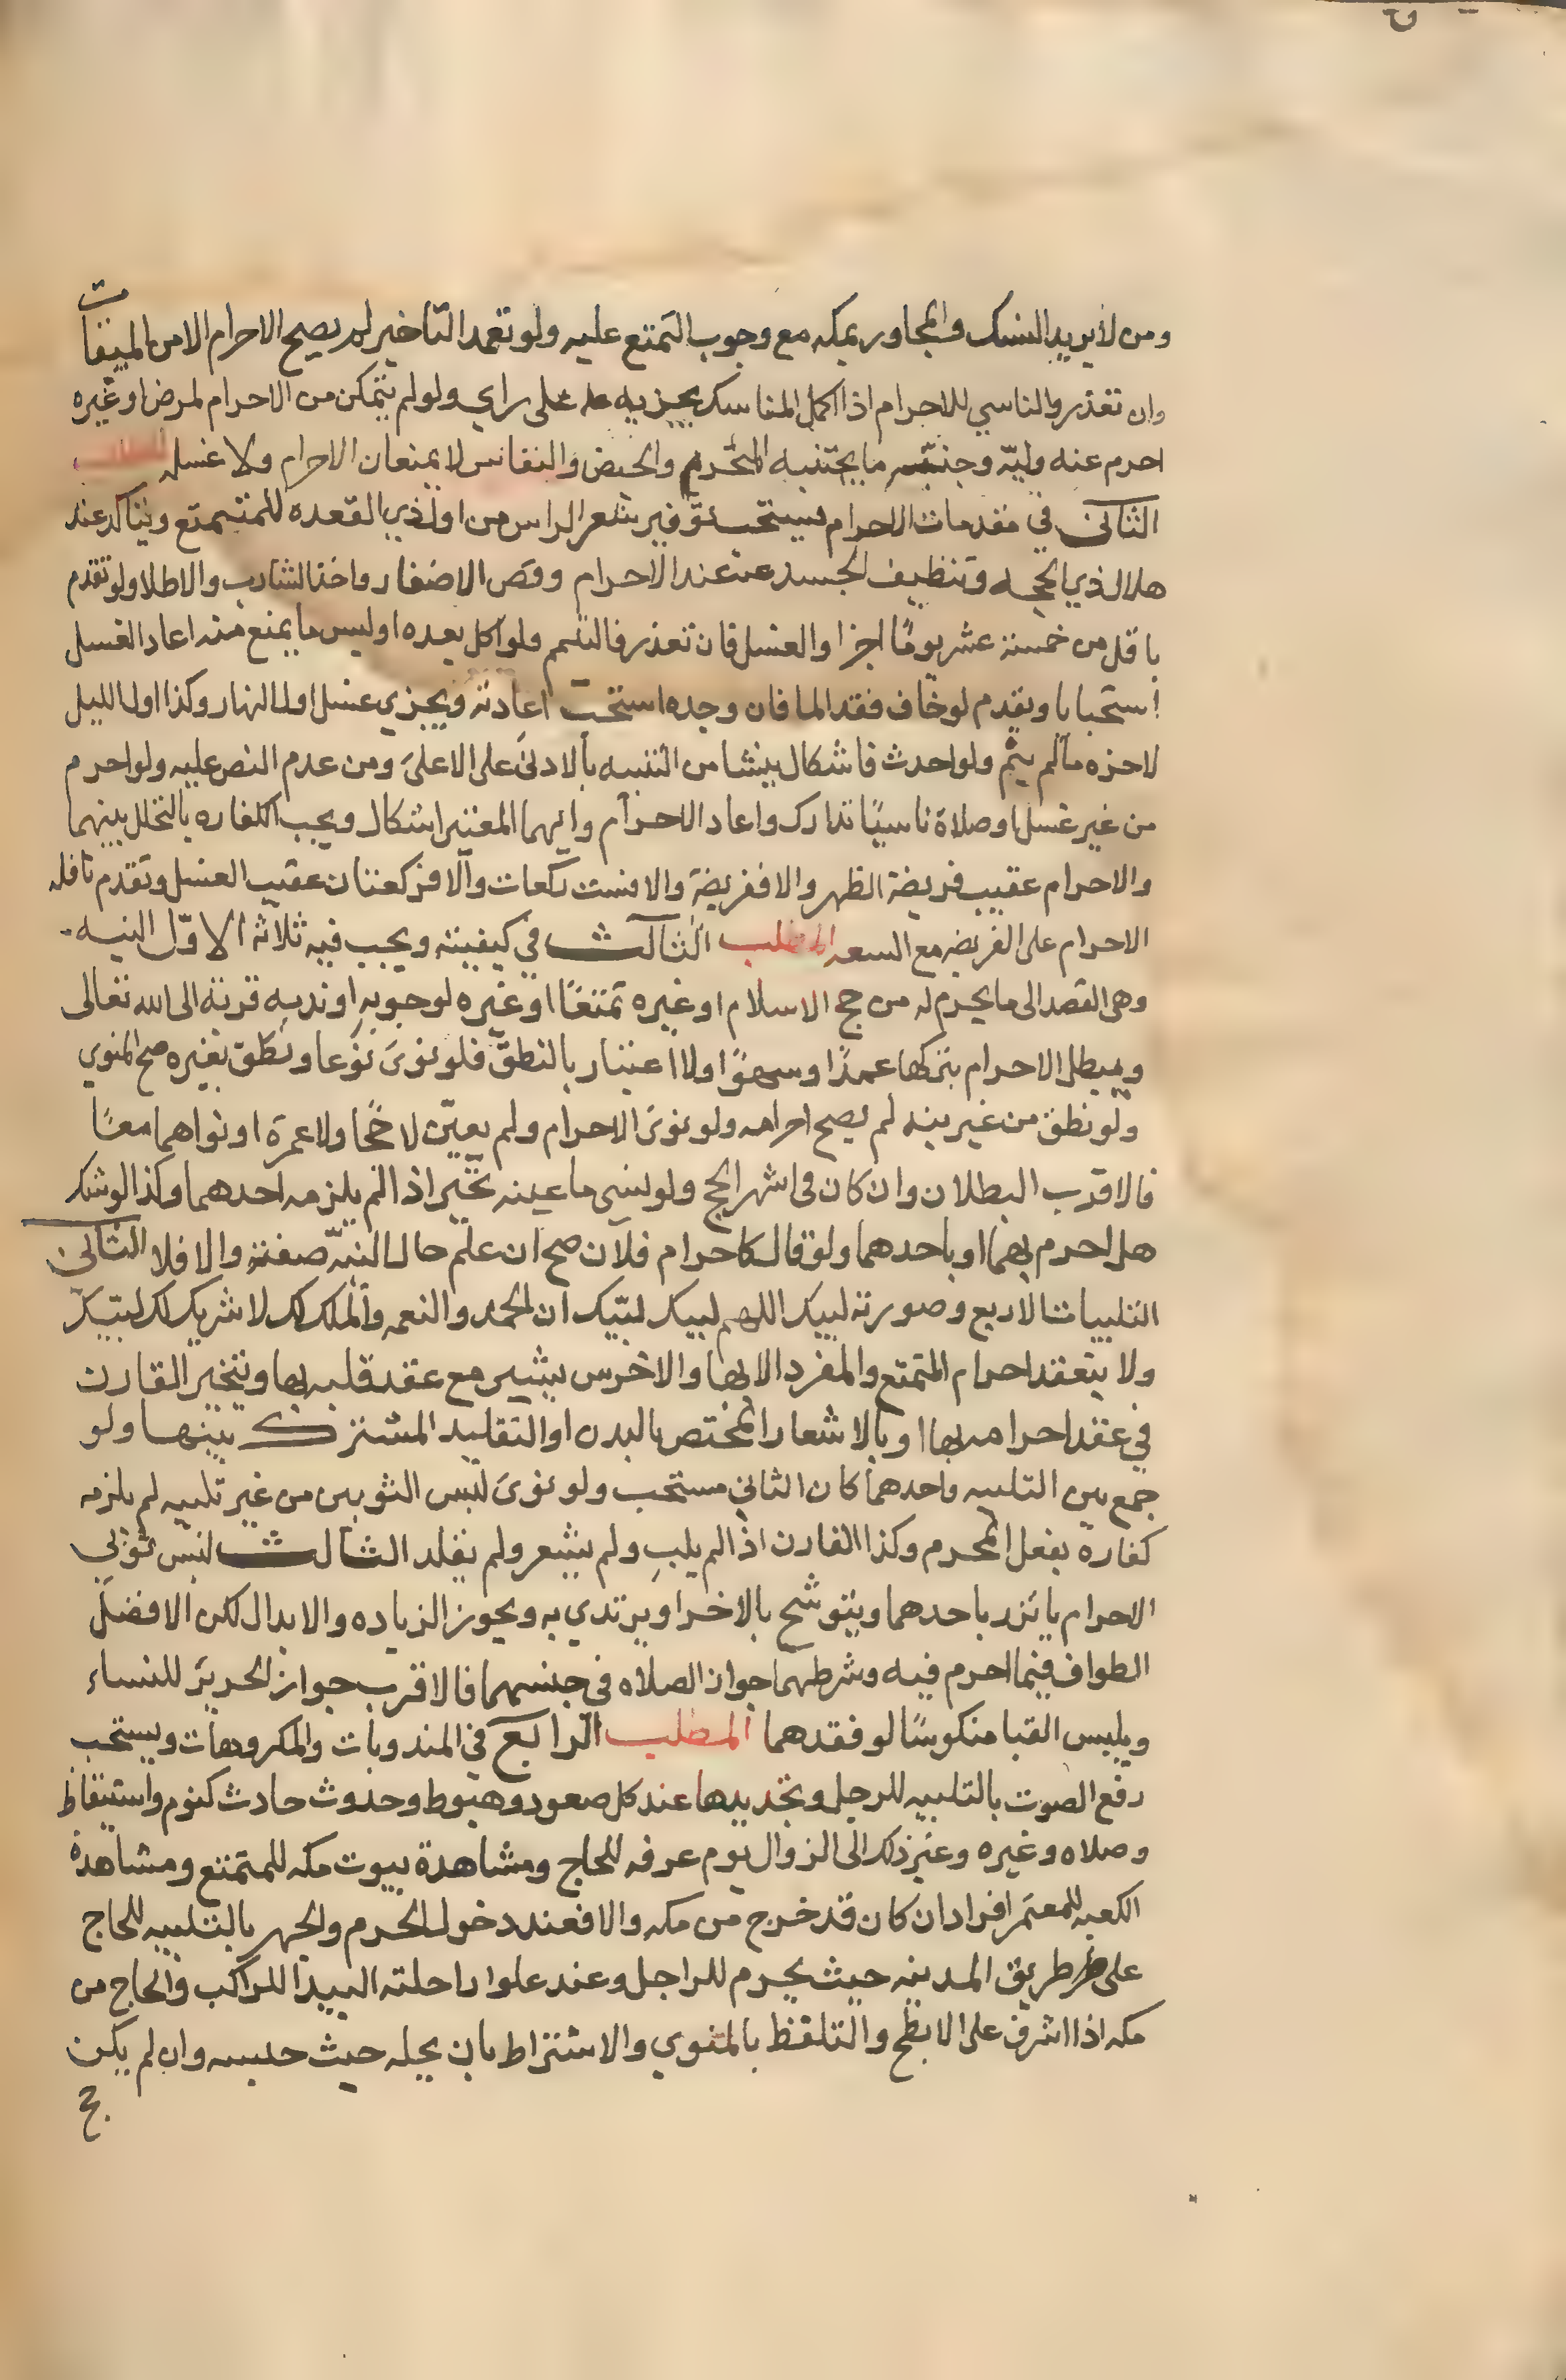 ومن لا يريد النسك والمجاور بمكه مع وجوب التمتع عليه ولو تعمد التاخير لم يصح الاحرام الا من الميقات
وان تعذر والناسي للاحرام اذا اكمل المناسك يجزيه على راي ولو لم يتمكن من الاحرام لمرض او غيره
احرم عنه وليّه وجنبه ما يجتنبه المحرم والحيض والنفاس لا يمنعان الاحرام ولا غسله المطلب
الثاني في مقدمات الاحرام يستحب توفير شعر الراس من اول ذي القعده للمتمتع ويتاكد عند
هلال ذي الحجه وتنظيف الجسد عند الاحرام وقص الاضفار واخذ الشارب والاطلا ولو تقدم
باقل من خمسة عشر يومًا اجزا والغسل فان تعذر فالتيمم ولو اكل بعده او لبس ما يمنع منه اعاد الغسل
استحبابا ويقدم لو خاف فقد الما فان وجده استحب اعادته ويجزي غسل اول النهار وكذا اول الليل
لاخره ما لم ينم ولو احدث فاشكال ينشا من التنبيه بالادنى على الاعلى ومن عدم النص عليه ولو احرم
من غير غسل او صلاة ناسيًا تدارك واعاد الاحرام وايهما المعتبر اشكال ويجب الكفاره بالتخلل بينهما
والاحرام عقيب فريضة الظهر والا ففريضة والا فست ركعات والا فركعتان عقيب الغسل وتقدم نافله
الاحرام على الفريضه مع السعه المطلب الثالث في كيفيته ويجب فيه ثلاثة الاوّل النيه
وهي القصد الى ما يحرم له من حج الاسلام او غيره تمتعًا او غيره لوجوبه او ندبه قربة الى الله تعالى
ويبطل الاحرام بتركها عمدًا وسهوًا ولا اعتبار بالنطق فلو نوى نوعا ونطق بغيره صح المنوي
ولو نطق من غير نيه لم يصح احرامه ولو نوى الاحرام ولم يعيّن لا حجًا ولا عمرة او نواهما معًا
فالاقرب البطلان وان كان في اشهر الحج ولو نسي ما عينه تخير اذا لم يلزمه احدهما وكذا لو شك
هل احرم بهما او باحدهما ولو قال كاحرام فلان صح ان علم حال النيّه صفته والا فلا الثاني
التلبيات الاربع وصورته لبيك اللهم لبيك لبّيك ان الحمد والنعمه والملك لك لا شريك لك لبّيك
ولا ينعقد احرام المتمتع والمفرد الا بها والاخرس يشير مع عقد قلبه بها ويتخير القارن
في عقد احرامه بها او بالاشعار المختص بالبدن او التقليد المشترك بينها ولو
جمع بين التلبيه واحدهما كان الثاني مستحب ولو نوى لبس الثوبين من غير تلبيه لم يلزمه
كفارة بفعل المحرم وكذا القارن اذا لم يلبِ ولم يشعر ولم يقلد الثالث لبس ثوبي
الاحرام ياتزر باحدهما ويتوشح بالاخر او يرتدي به ويجوز الزياده والابدال لكن الافضل
الطواف فيما احرم فيه وشرطهما جواز الصلاه في جنسهما فالاقرب جواز الحرير للنساء
ويلبس القبا منكوسًا لو فقدهما المطلب الرابع في المندوبات والمكروهات ويستحب
رفع الصوت بالتلبيه للرجل وتجديدها عند كل صعود وهبوط وحدوث حادث كنوم واستيقاظ
وصلاه وغيره وغير ذلك الى الزوال يوم عرفه للحاج ومشاهدة بيوت مكه للمتمتع ومشاهدة
الكعبه للمعتمر افرادا ان كان قد خرج من مكه والا فعند دخول الحرم والجهر بالتلبيه للحاج
على طريق المدينه حيث يحرم للراجل وعند علوا راحلته البيدا للراكب والحاج من
مكه اذا اشرف على الابطح والتلفظ بالمنوي والاشتراط بان يحله حيث حبسه وان لم يكن
حج